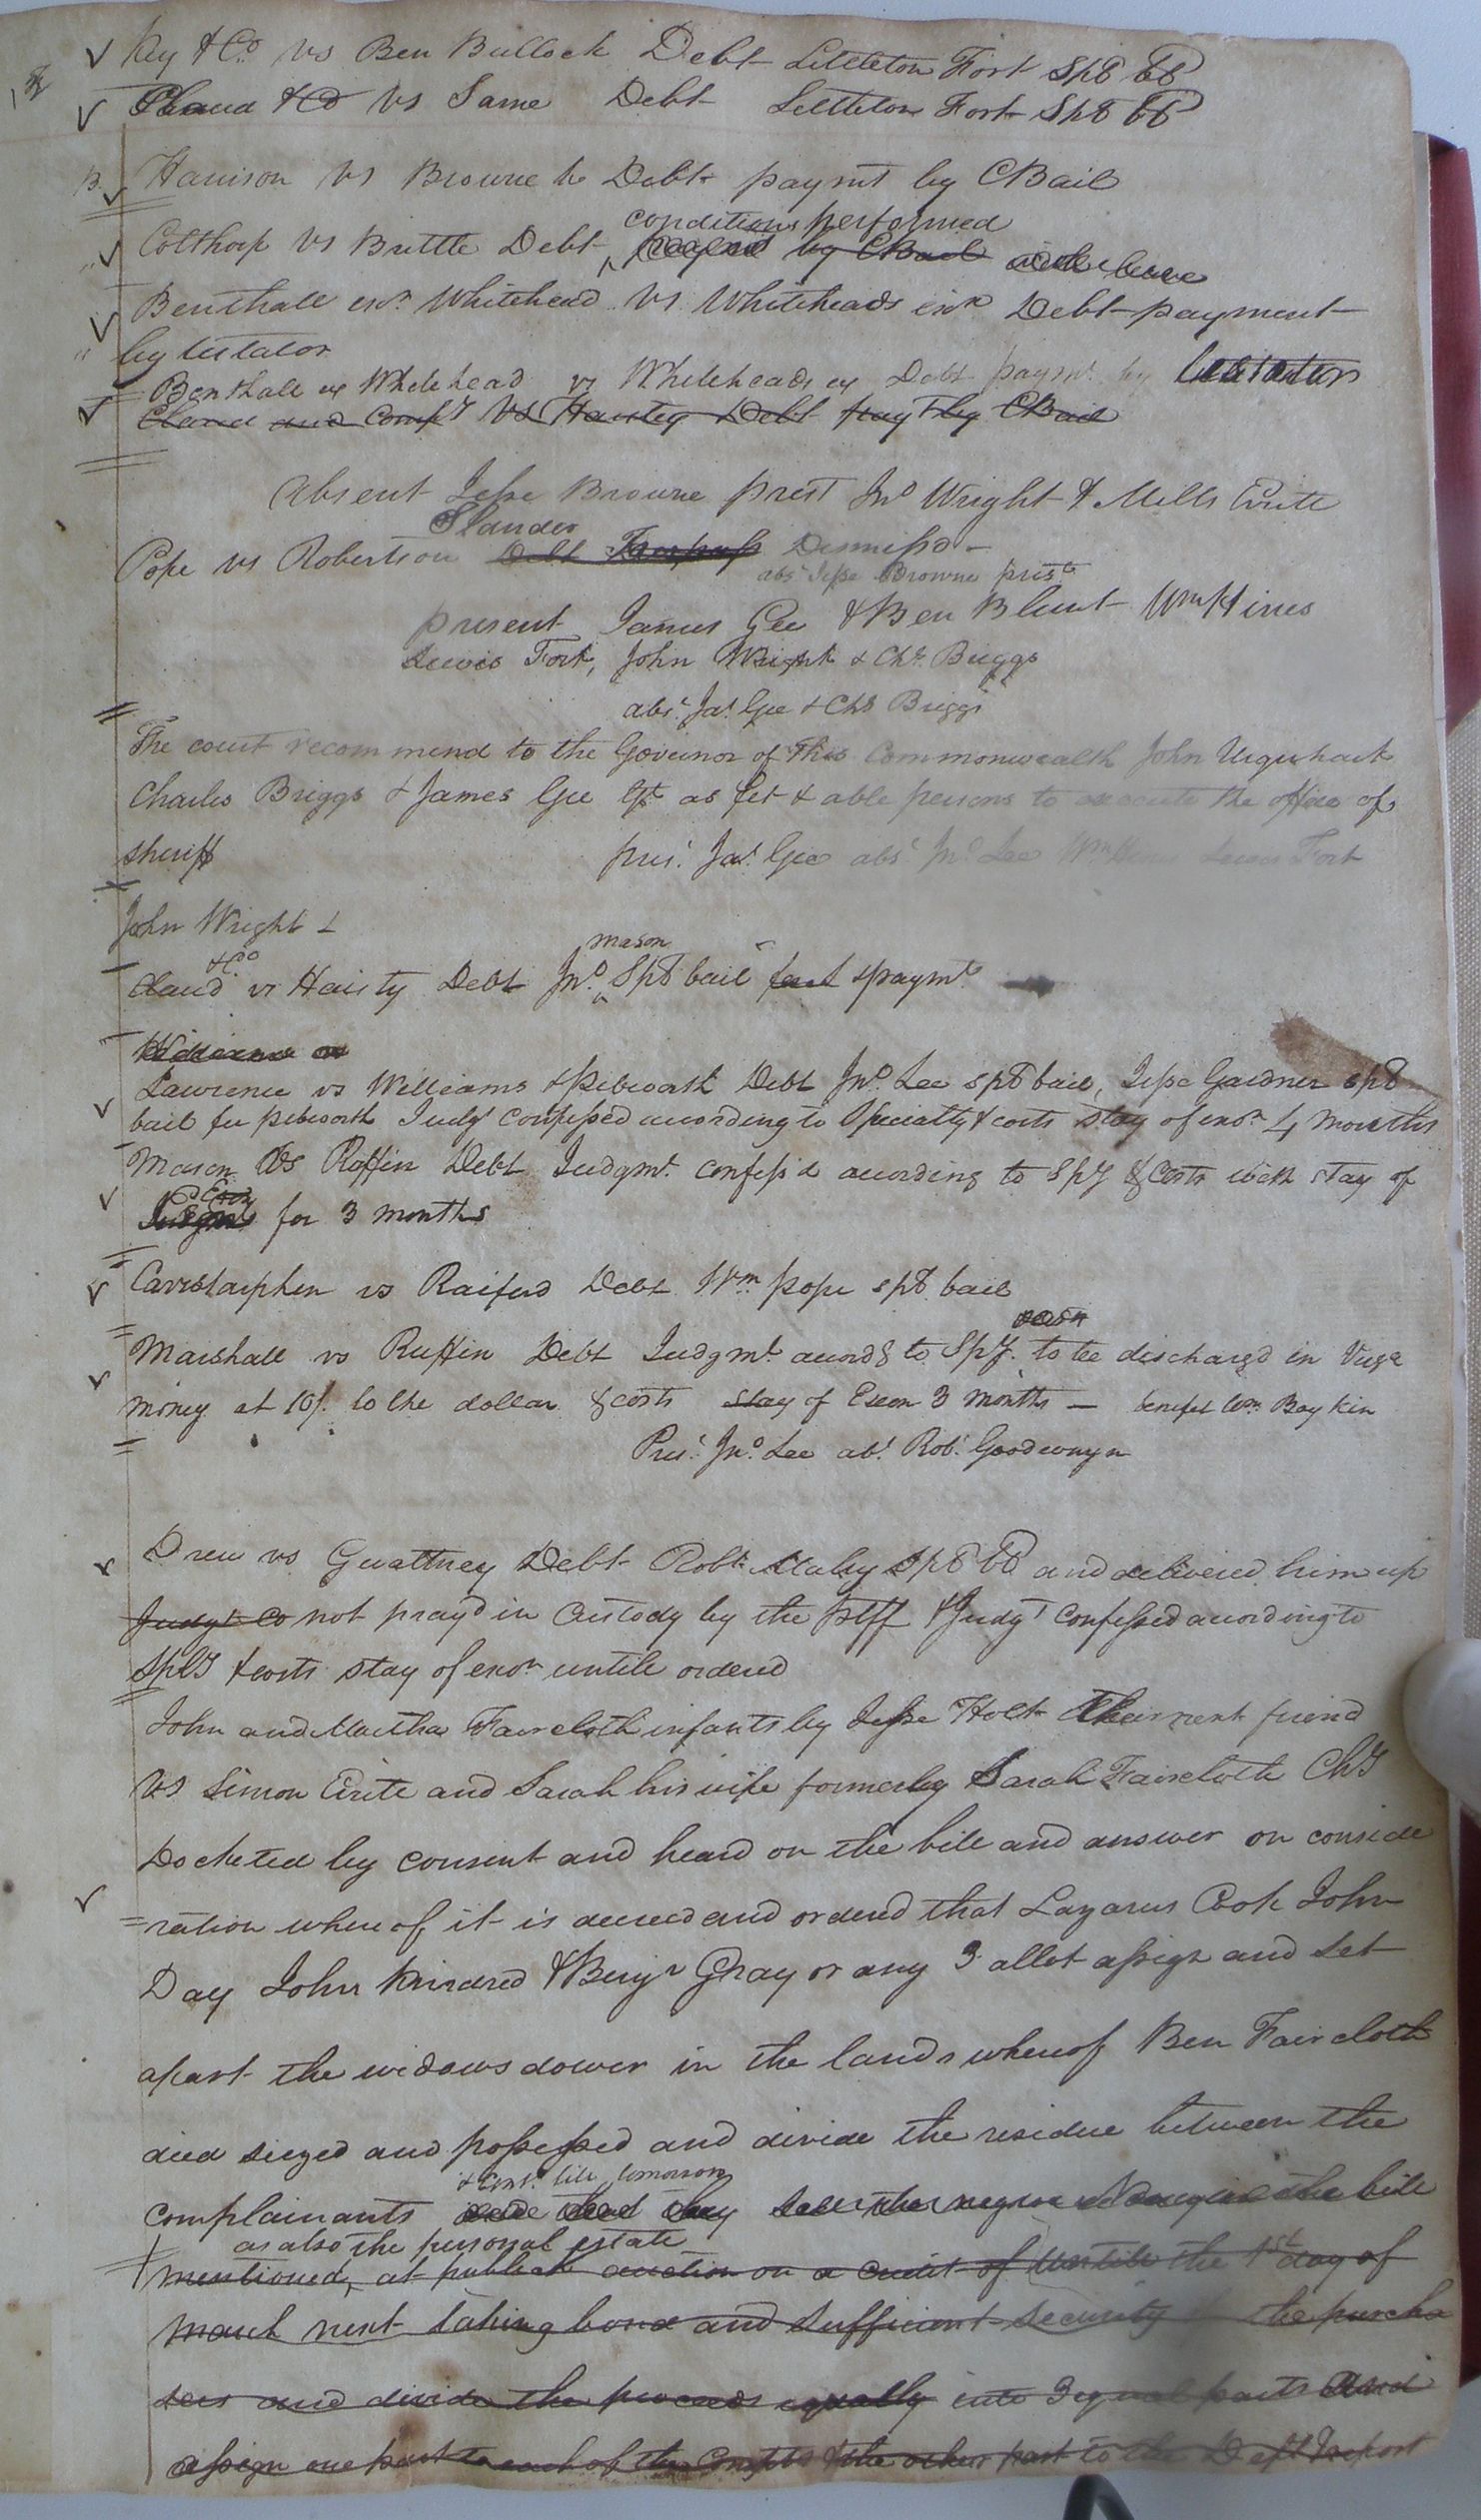 Key & Co. vs Ben Bullock Debt Littleton Fort Spl bl
Claud & Co vs Same Debt Littleton Fort Spl bl
Harrison vs Browne Jr Debt paymt by C Bail
conditions performed
Colthorp vs Brittle Debt paymt by C Bail with leave
Benthall exr. Whitehead vs Whiteheads exr Debt payment
by testator
Benthall ex Whitehead vs Whiteheads ex Debt paymt. by testator
Claud and Compy vs Hausty Debt payt by C Bail
Absent Jesse Browne prest Jno Wright & Mills Crite
Slander
Pope vs Robertson Debt Trespass Dismissd
abst Jesse Browne prest
present James Gee & Ben Blunt Wm Hines
Lewis Fort, John Wright & Chs. Briggs
abst. Jas. Gee & Chs Briggs
The court recommend to the Governor of this Commonwealth John Urquhart
Charles Briggs & James Gee Gt as fit & able persons to execute the office of
Sheriff pres. Jas. Gee abst Jno Lee Wm Lewis Fort
John Wright
& Co mason
Claud vs Haisty Debt Jno. Spl bail & paymt
Williams
Lawrence vs Williams & Pebworth Debt Jno. Lee spl bail, Jesse Gardner spl
bail for pebworth Judgt confessed according to Specialty & costs stay of exon 4 months
Mason vs Ruffin Debt Judgmt. confess'd according to Spy & Costs with stay of
Exon
Judgmt for 3 months
Carrstarphen vs Raiford Debt Wm. pope spl. bail
Marshall vs Ruffin Debt Judgmt. accordg to Spy. to be discharged in Virga
money at 10/. to the dollar & costs stay of Exeon 3 months — benefit Wm. Boykin
Pres. Jno. Lee abt. Robt. Goodwnyn
Drew vs Gwaltney Debt Robt. Mabry Spl bl and delivered him up
Judgt co not pray'd in Custody by the Plff & Judgt confessed according to
Splty & costs stay of exon untill ordered
John and Martha Faircloth infants by Jesse Holt their next friend
vs Simon Crite and Sarah his wife formerley Sarah Faircloth Chy
Docketed by consent and heard on the bill and answer on conside
ration whereof it is decreed and ordered that Lazarus Cook John
Day John Kindred & Benjn Gray or any 3 allot assign and set
apart the widows dower in the lands whereof Ben Faircloth
died siezed and possessed and divide the residue between the
& Cont. till tomorrow
complainants and that they sell the negroe in the bill
as also the personal estate
mentioned, at publick auction on a credit of untill the 1st day of
march next taking bond and sufficient security of the purcha
sers and divide the proceeds equally into 3 equal parts and
assign one part to each of the Complts & the other part to the Deft & report